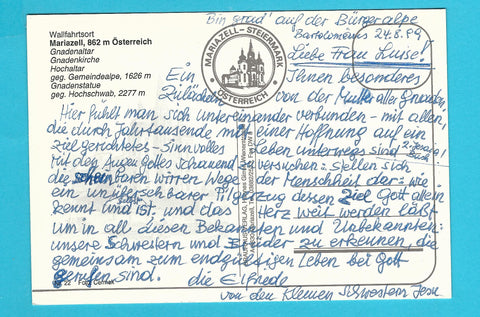 Wallfahrtsort
Mariazell, 862 m Österreich
Gnadenaltar
Gnadenkirche
Hochaltar
geg. Gemeindealpe, 1626 m
Gnadenstatue
geg. Hochschwab, 2277 m
MARIAZELL - STEIERMARK
ÖSTERREICH
Bin grad' auf der Bürgeralpe
Bartolomäus 24.8.99
Liebe Frau Luise!
Ein Ihnen besonderes
Zulächeln von der Mutter aller Gnaden,
Hier fühlt man sich untereinander verbunden - mit allen,
die durch Jahrtausende mit einer Hoffnung auf ein
zielgerichtetes - sinnvolles Leben unterwegs sind
Mit den Augen Gottes schauend zu versuchen: stellen sich
die scheinbar wirren Wege der Menschheit dar: wie
ein unübersehbarer Pilgerzug dessen Ziel Gott allein
kennt und ist, und das Herz weit werden läßt
um in all diesen Bekannten und Unbekannten:
unsere Schwestern und Brüder zu erkennen, die
gemeinsam zum endgültigen Leben bei Gott
gerufen sind. die Elfriede
von den Kleinen Schwestern Jesu